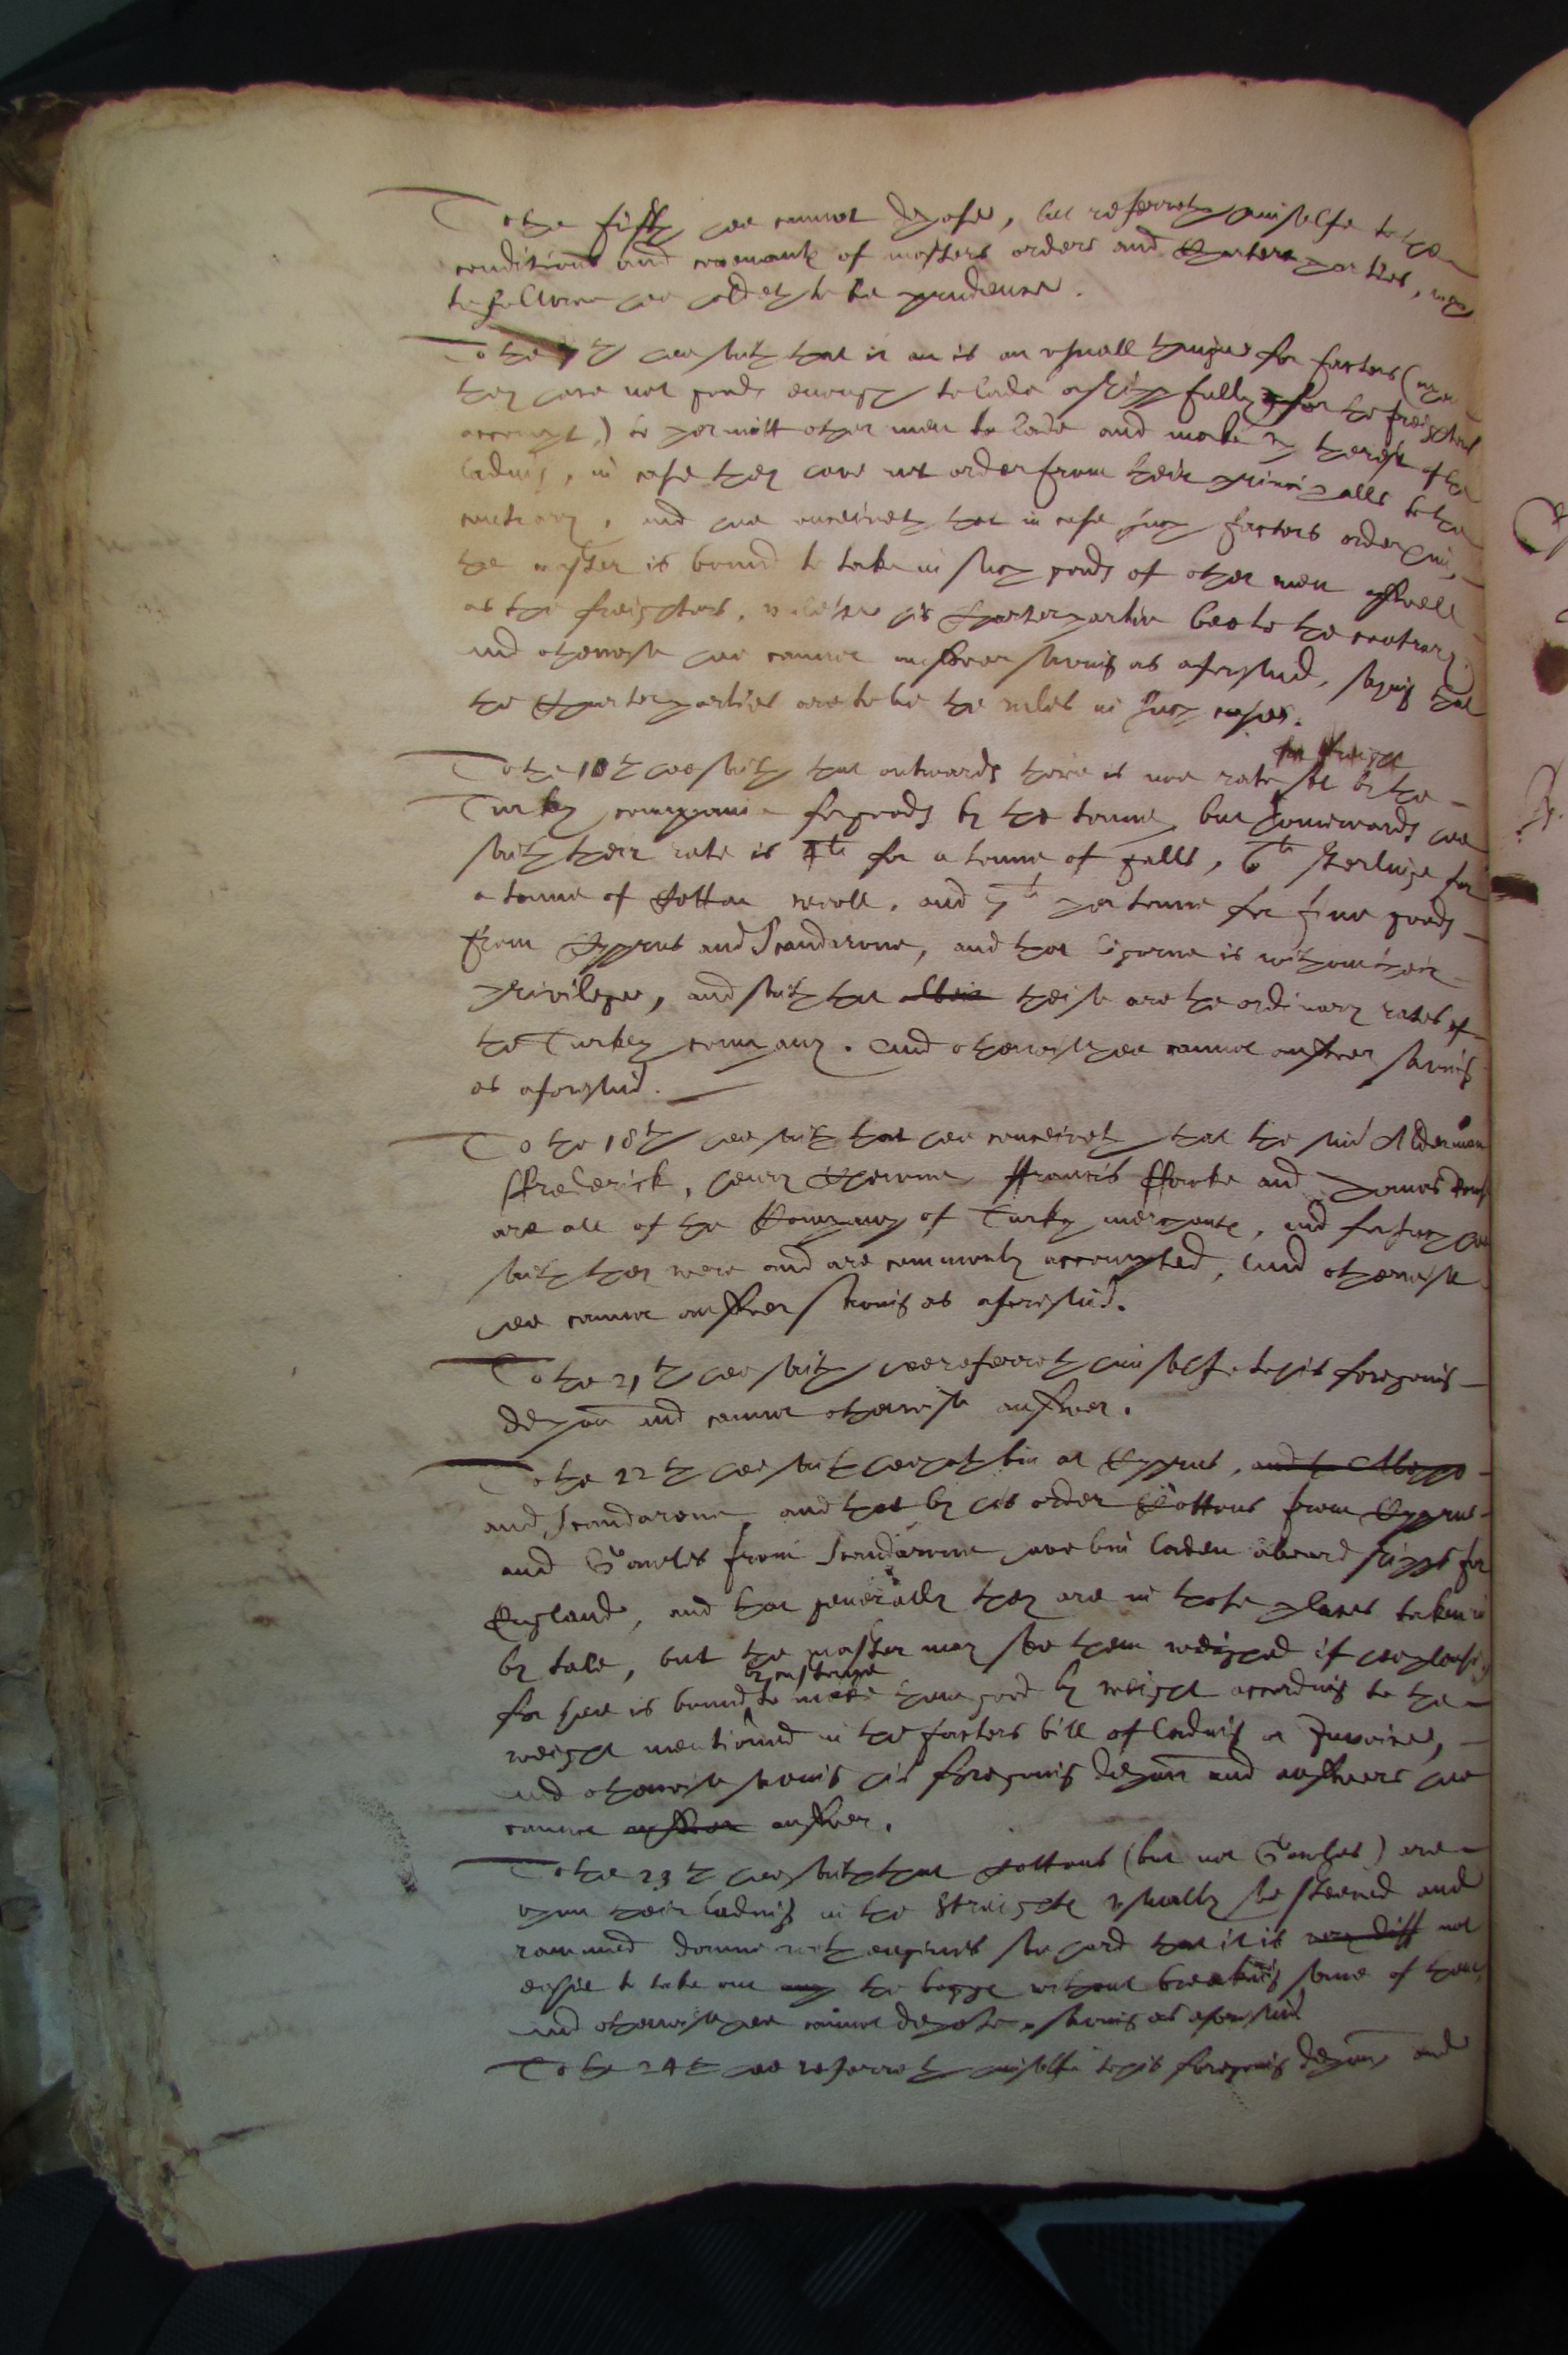 To the fifth hee cannot depose, but referreth himselfe to the
conditions and covenants of masters orders and Charter parties, which
to followe hee holdeth to be prudence.
To the 7th hee saith that it an is an usuall thinge for factors (when
they have not goods enough to lade a shipp fully for the freighters
accompt,) to permitt other men to lade and make up the rest of the
ladeing, in case they have not order from their principalls to the
contrary, and hee conceiveth that in case such factors order him,
the master is bound to take in such goods of other men aswell
as the freighters, unlesse his Charterpartie bee to the contrary
and otherwise hee cannot answer saving as aforesaid, saying that
the Charterparties are to be the rules in such cases.
for freight
To the 10th hee saith that outwards there is noe rate set by the
Turkey companie for goods by the tonne, but homewards hee
saith their rate is 4li for a tonne of galls, 6li sterlinge for
a tonne of Cotton wooll, and 7li per tonne for fine goods
from Cyprus and Scandarone, and that Ligorne is without their
priviledge, and saith that theise are the ordinary rates of
the Turkey company. And otherwise hee cannot answer saving
as aforesaid.
To the 18th hee saith that hee conceiveth that the said Alderman
ffrederick, henry Francis and James
are all of the Company of Turkey merchants, and for such hee
saith they were and are commonly accompted, And otherwise
hee cannot answer saving as aforesaid.
To the 21th hee saith hee referreth himselfe to his foregoing
depon and cannot otherwise answer.
To the 22th hee saith hee hath bin at Cyprus, and to Aleppo
and Scandarone, and that by his order Cottons from Cyprus
and Gaules from Scandarone have bin laden aboard shipps for
England, and that generally they are in those places taken in
by tale, but the master may see them weighed if hee please,
by custome
for hee is bound to make them good by weight according to the
weight mentioned in the factors bill of lading or Invoice,
and otherwise saving his foregoing depon and answers hee
cannot answer answer.
To the 23th hee saith that Cottons (but not Gaules) are
upon their lading in the Streights usually so steeved and
rammed downe with engines so hard that it is very diff not
easie to take out any the baggs without breaking some of them
and otherwise hee cannot depose, saving as aforesaid
To the 24th hee referreth himselfe to his foregoing depon and